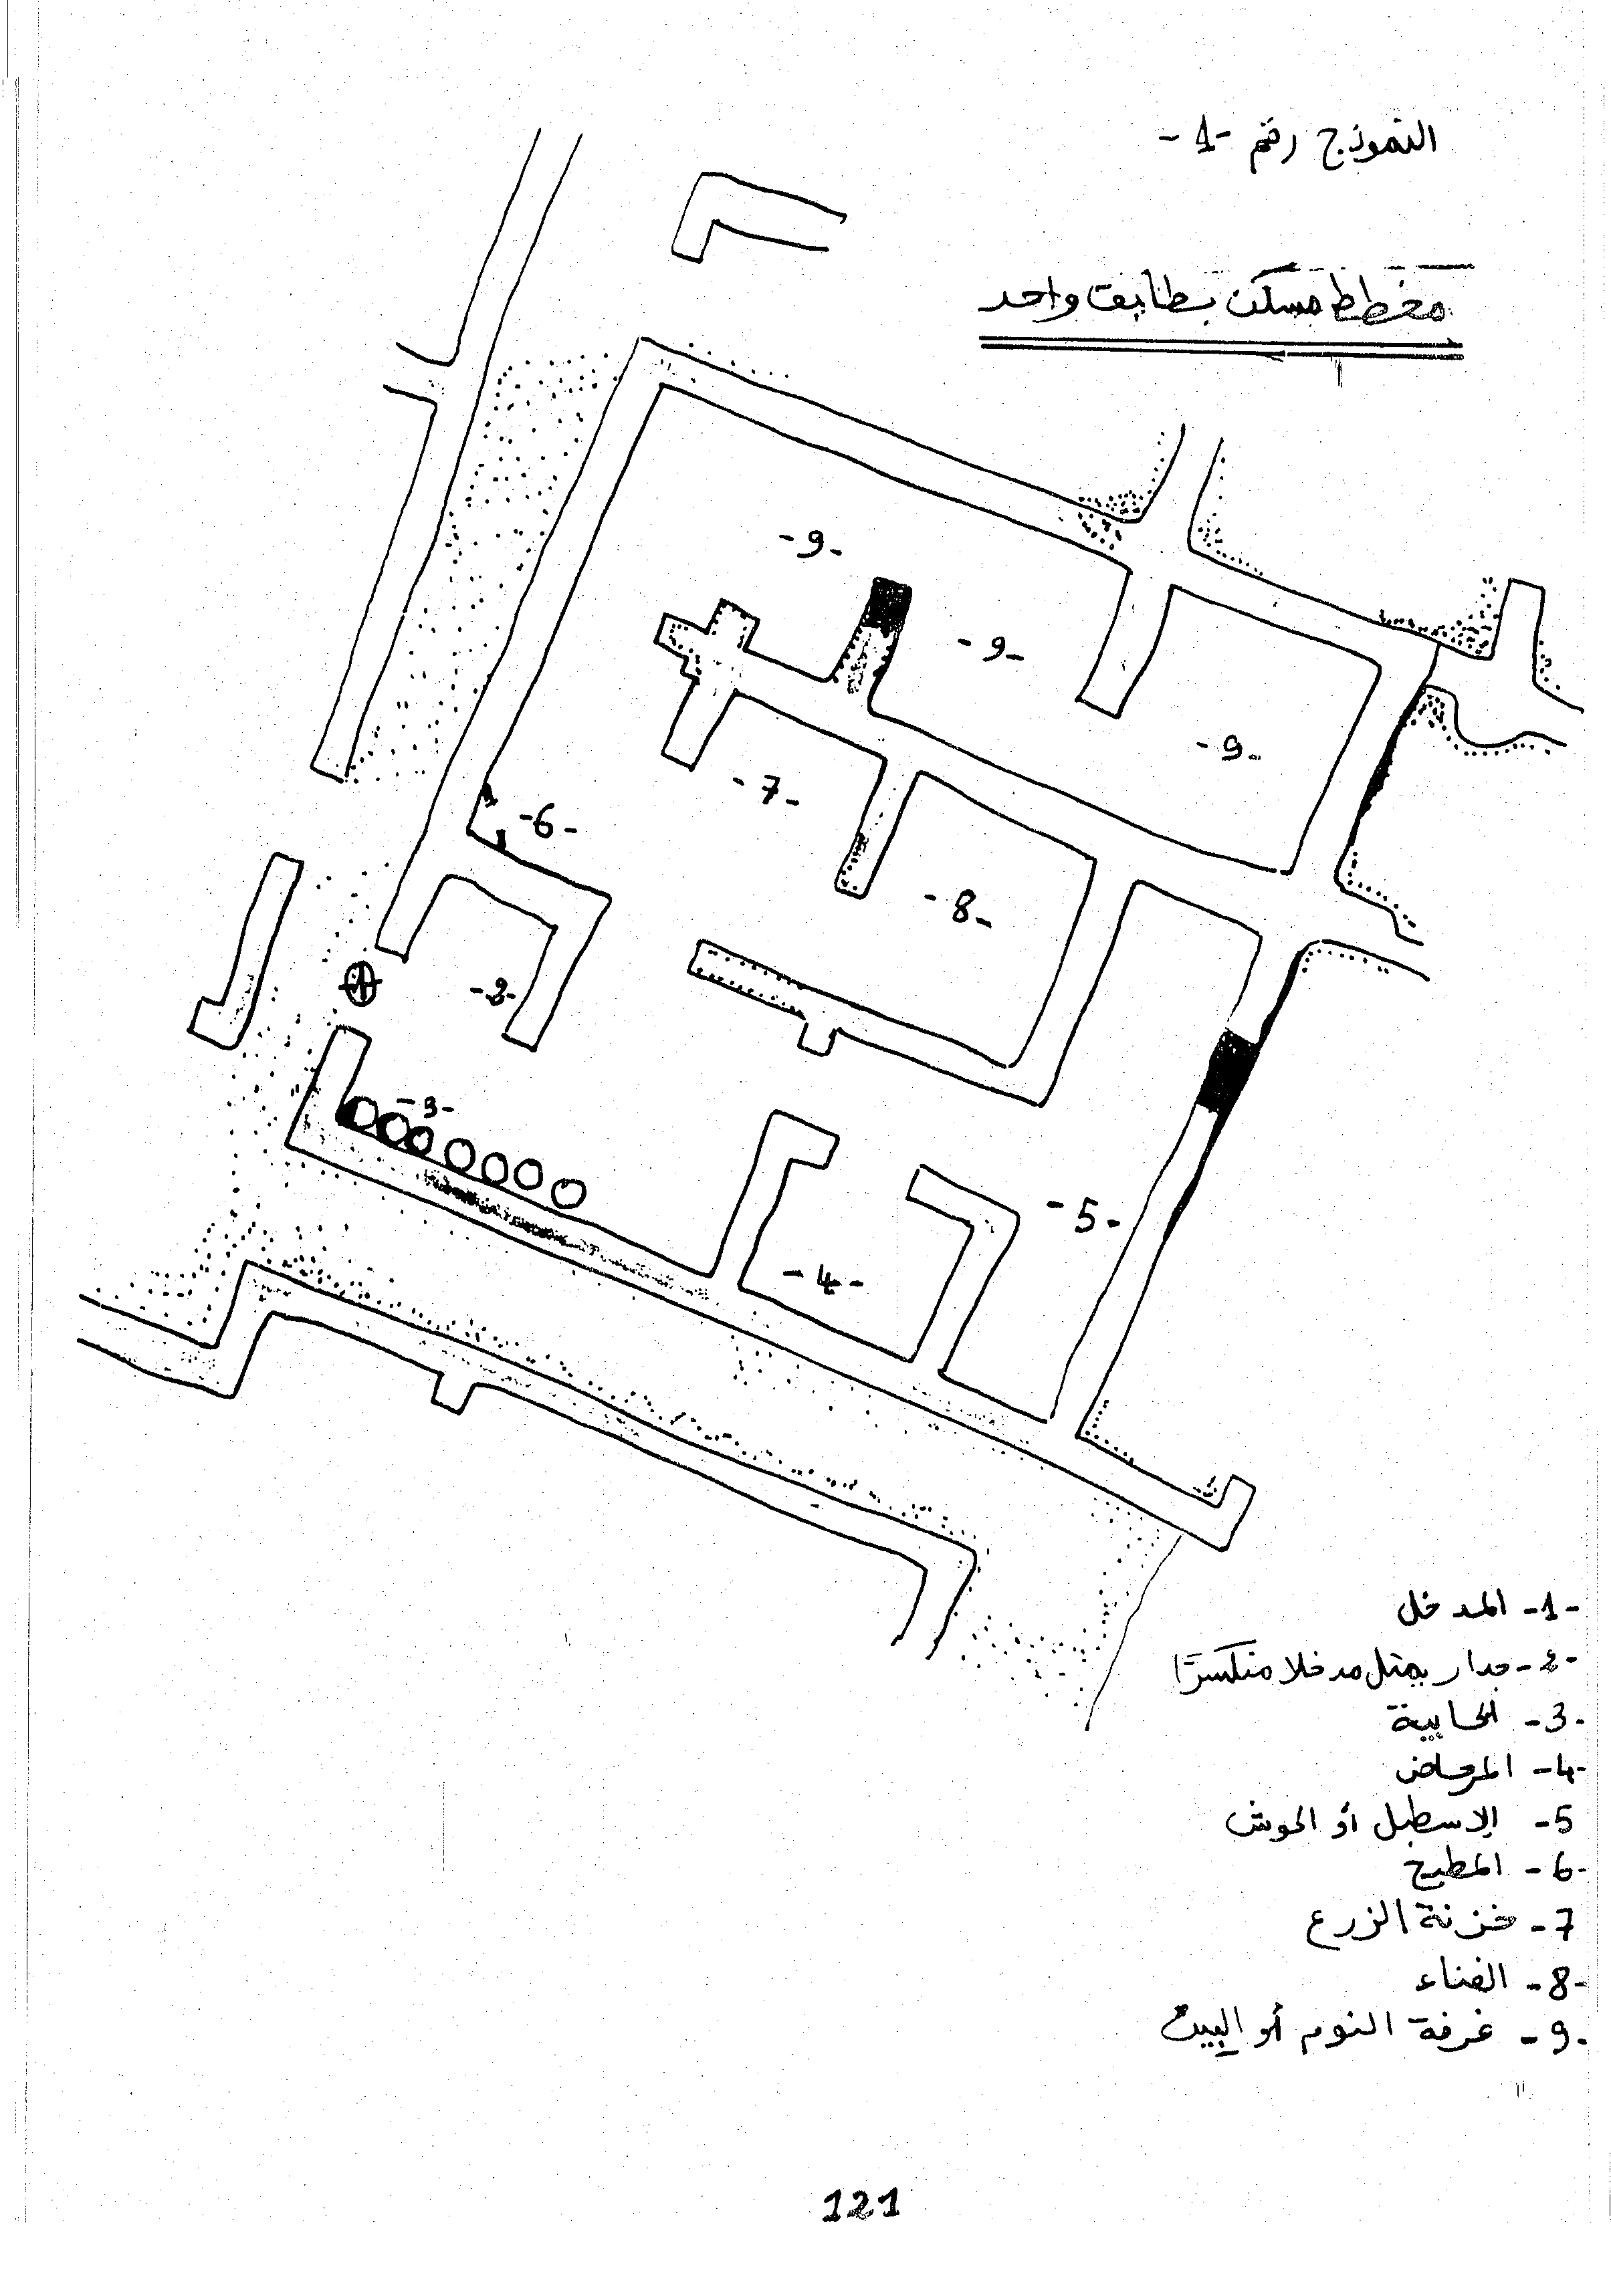 النموذج رقم -1-
مخطط مسكن بطابق واحد
-9-
-9-
-9-
-7-
-6-
-8-
1
-2-
-3-
-5-
-4-
-1- المدخل
-2- جدار يمثل مدخلا منكسرًا
-3- الخابية
-4- المرحاض
-5 الاسطبل أو الحوش
-6- المطبخ
-7 خزنة الزرع
-8- الفناء
-9- غرفة النوم أو البيت
121